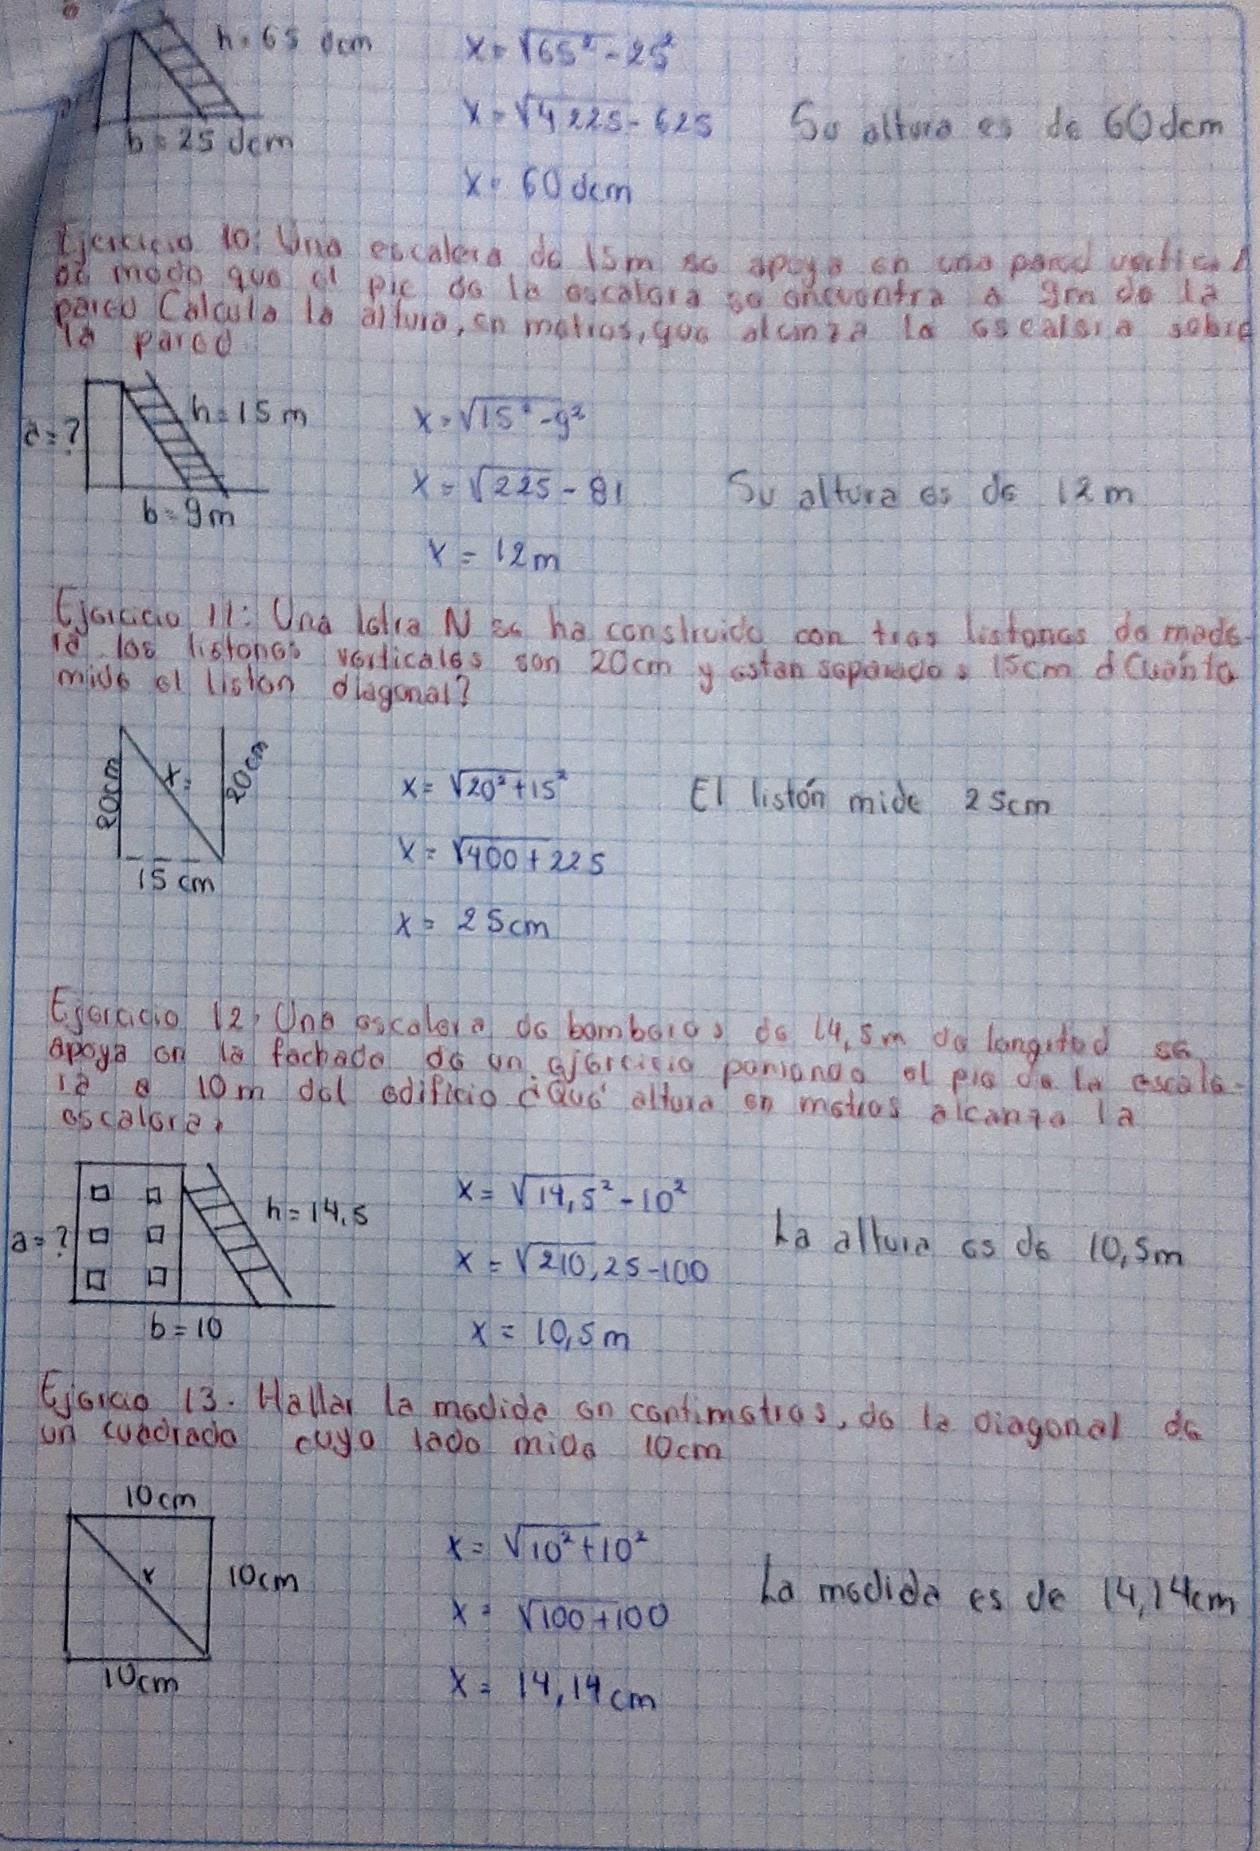 h=65 dcm
x=√65²-25²
x=√4225-625
Su altura es de 60dcm
b=25 dcm
x=60dcm
Ejercicio 10: Una escalera de 15m se apoya en una pared vertical
de modo que el pie de la escalera se encuentra a 9m de la
pared Calcula la altura, en metros, que alcanza la escalera sobre
la pared
h=15m
a=?
x=√15²-9²
x=√225-81
Su altura es de 12m
b=9m
x=12m
Ejercicio 11: Una letra N se ha construido con tres listones de made
ra los listones verticales son 20cm y estan separados 15cm ¿Cuánto
mide el liston diagonal?
20cm
x=
20cm
15cm
x=√20²+15²
El listón mide 25cm
x=√400+225
x=25cm
Ejercicio 12, Una escalera de bomberos de 14,5m de longitod se
apoya en la fachada de un ejercicio poniendo el pie de la escale-
ra a 10m del edificio ¿Qué altura en metros alcanza la
escalera,
h=14,5
a=?
b=10
x=√14,5²-10²
La altura es de 10,5m
x=√210,25-100
x=10,5m
Ejercio 13. Hallar la medida en centimetros, de la diagonal de
un cuadrado cuyo lado mide 10cm
10cm
x
10cm
10cm
x=√10²+10²
La medida es de 14,14cm
x=√100+100
x=14,14cm